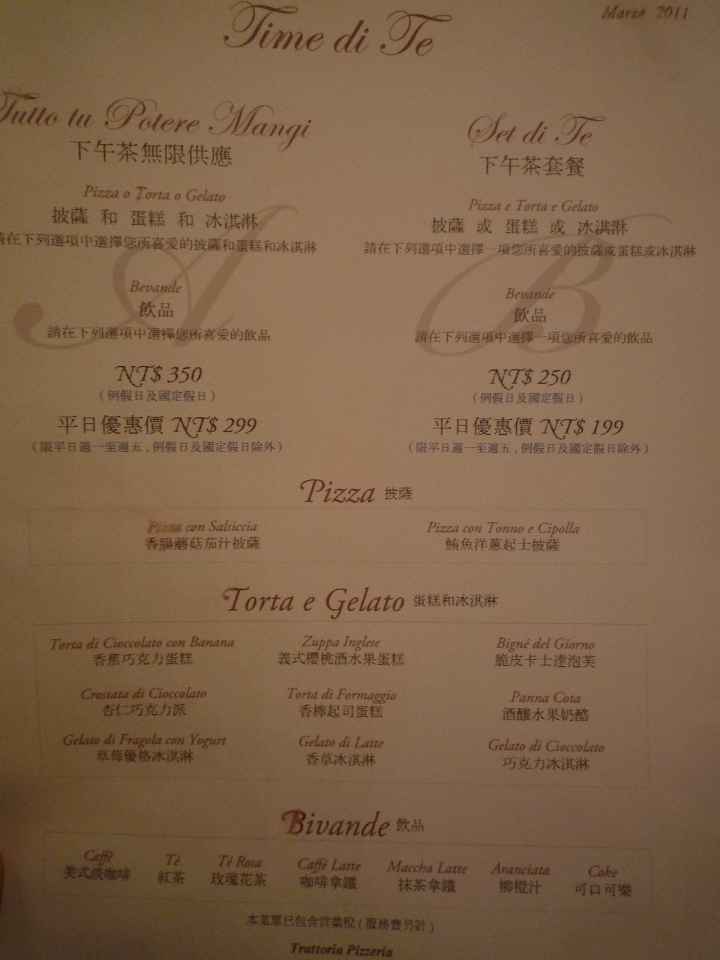 Marzo 2011
Time di Te
Tutto tu Potere Mangi
下午茶無限供應
Pizza o Torta o Gelato
披薩 和 蛋糕 和 冰淇淋
請在下列選項中選擇您所喜愛的披薩和蛋糕和冰淇淋
A
Bevande
飲品
請在下列選項中選擇您所喜愛的飲品
NT$ 350
(例假日及國定假日)
平日優惠價 NT$ 299
(限平日週一至週五,例假日及國定假日除外)
Set di Te
下午茶套餐
Pizza e Torta e Gelato
披薩 或 蛋糕 或 冰淇淋
請在下列選項中選擇一項您所喜愛的披薩或蛋糕或冰淇淋
B
Bevande
飲品
請在下列選項中選擇一項您所喜愛的飲品
NT$ 250
(例假日及國定假日)
平日優惠價 NT$ 199
(限平日週一至週五,例假日及國定假日除外)
Pizza 披薩
Pizza con Salsiccia
香腸蘑菇茄汁披薩
Pizza con Tonno e Cipolla
鮪魚洋蔥起士披薩
Torta e Gelato 蛋糕和冰淇淋
Torta di Cioccolato con Banana
香蕉巧克力蛋糕
Zuppa Inglese
義式櫻桃酒水果蛋糕
Bigné del Giorno
脆皮卡士達泡芙
Crostata di Cioccolato
杏仁巧克力派
Torta di Formaggio
香檸起司蛋糕
Panna Cota
酒釀水果奶酪
Gelato di Fragola con Yogurt
草莓優格冰淇淋
Gelato di Latte
香草冰淇淋
Gelato di Cioccolato
巧克力冰淇淋
Bivande 飲品
Caffè
美式淡咖啡
Tè
紅茶
Tè Rosa
玫瑰花茶
Caffè Latte
咖啡拿鐵
Maccha Latte
抹茶拿鐵
Aranciata
柳橙汁
Coke
可口可樂
本菜單已包含營業稅(服務費另計)
Trattoria Pizzeria